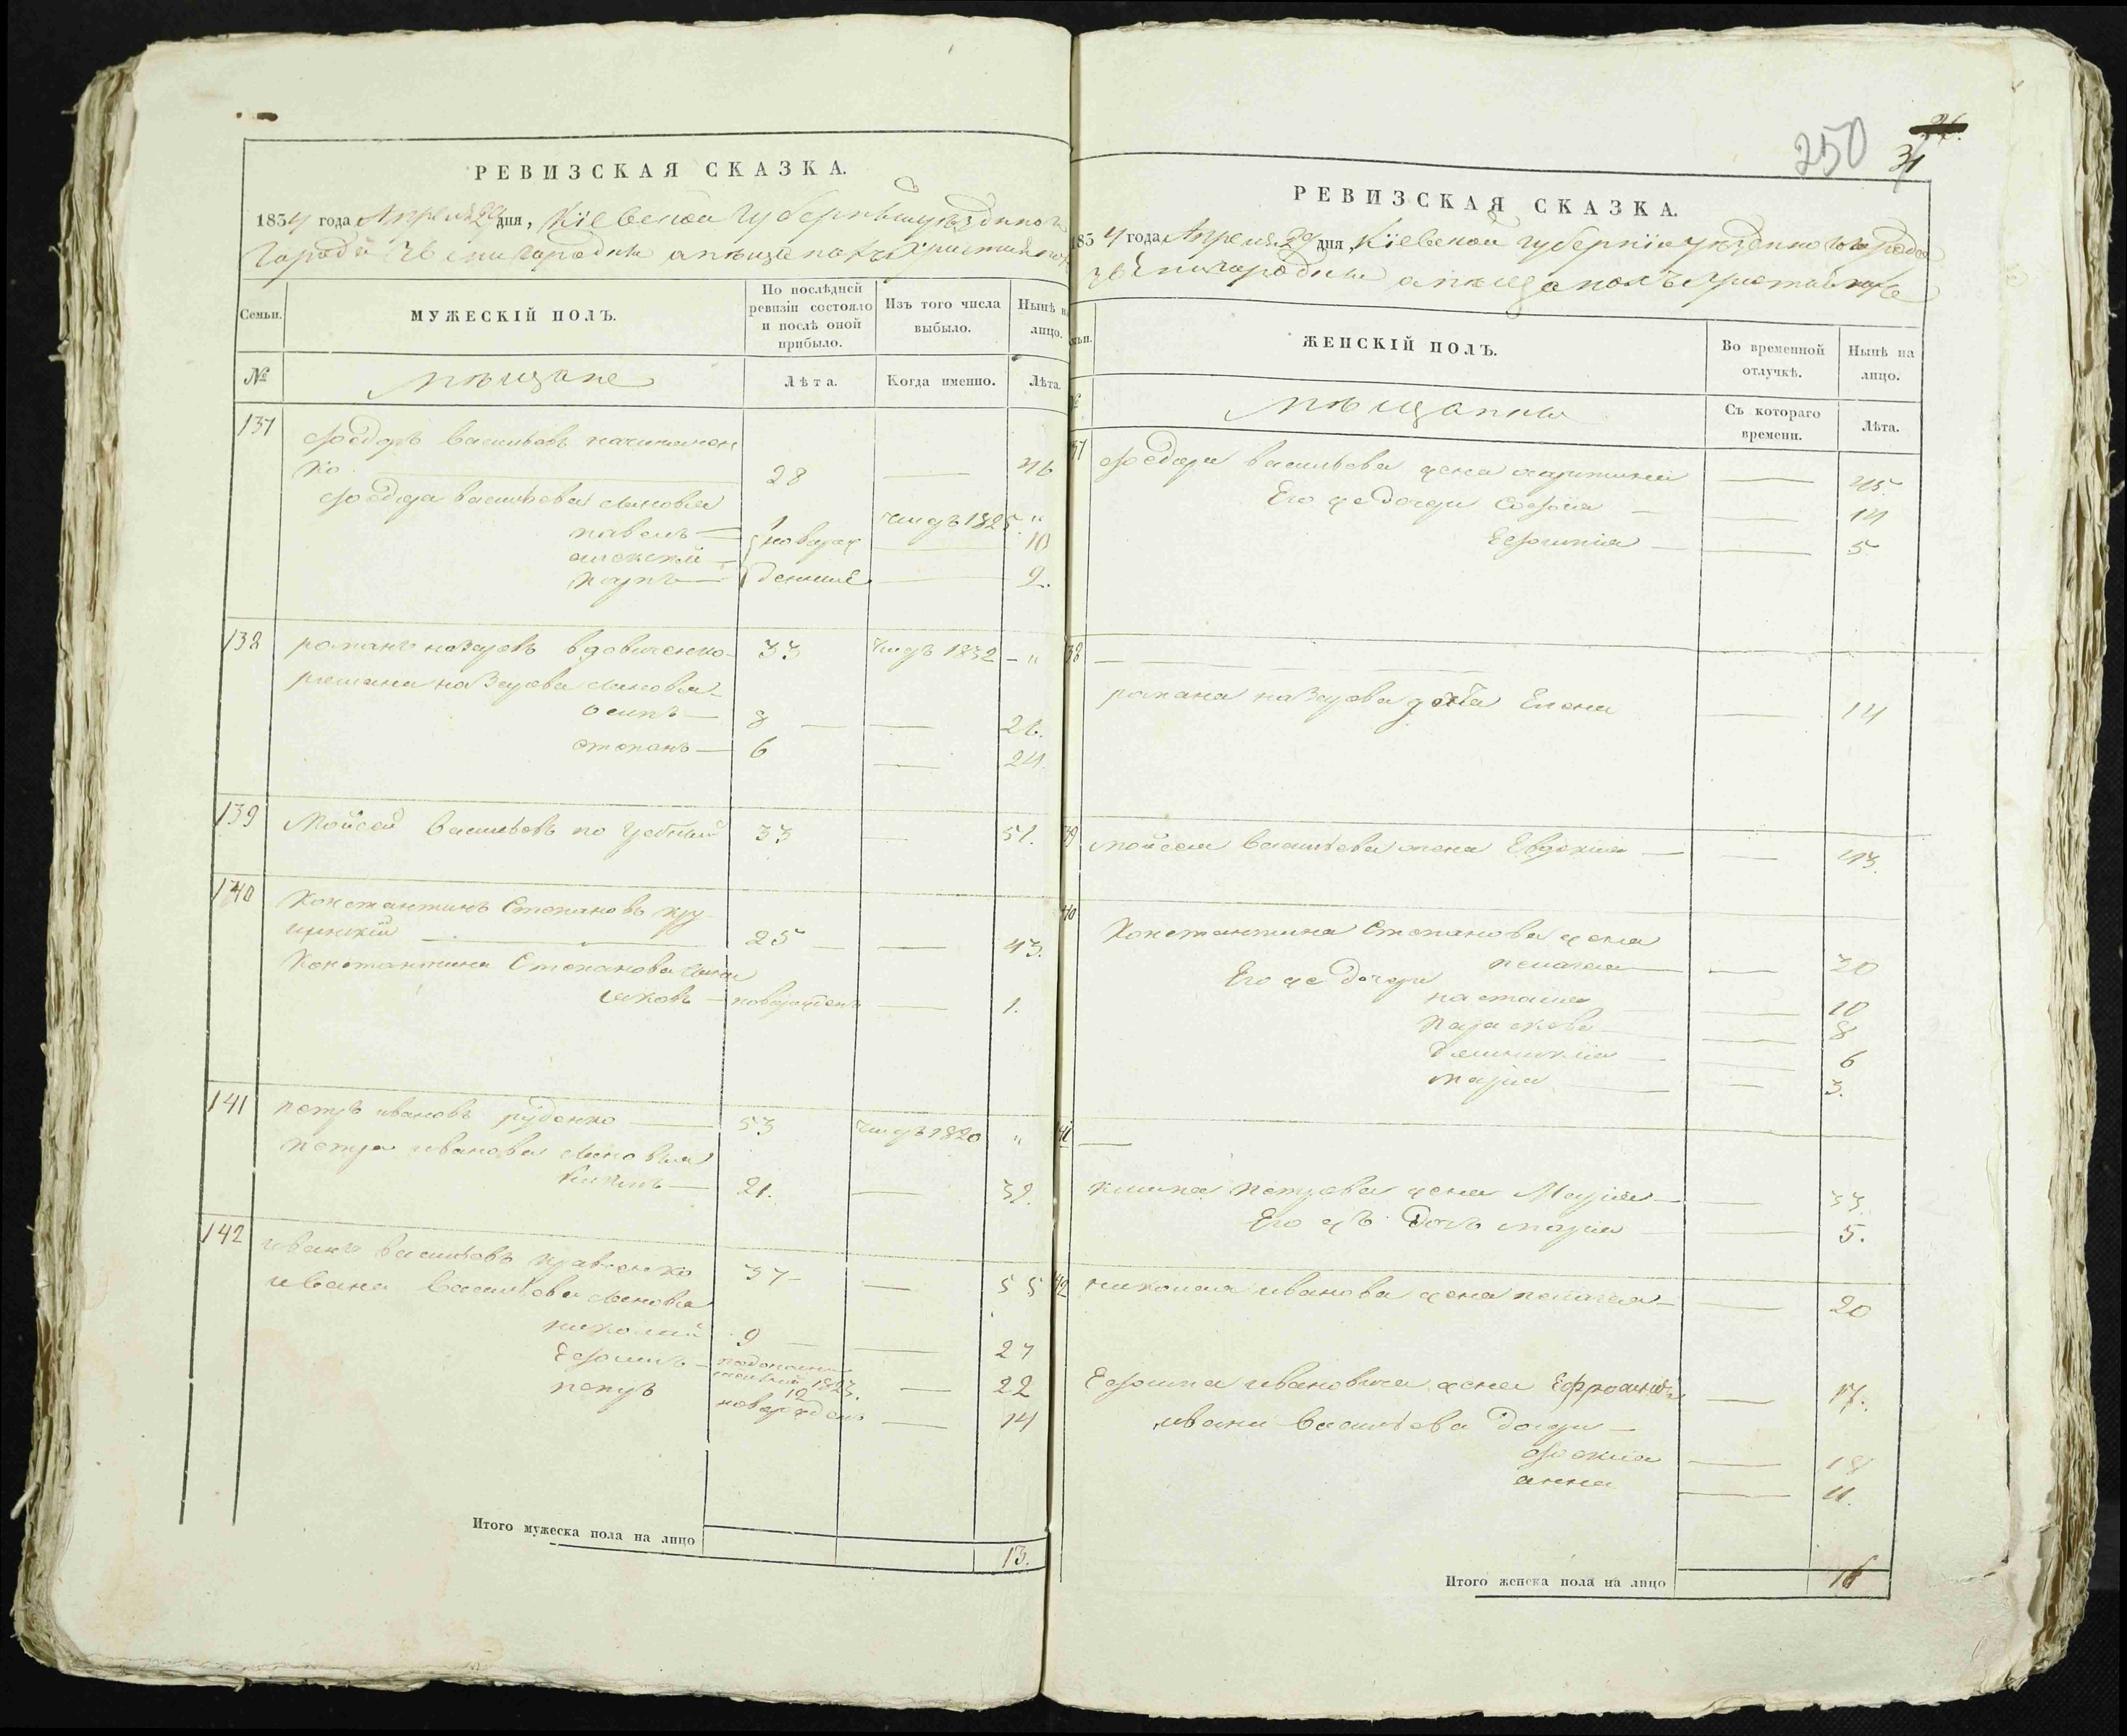 РЕВИЗСКАЯ СКАЗКА.
1834 года Апреля 29 дня, Кіевской губерніи уѣзднаго
города Звенигородки о мѣщанахъ христіянахъ
Семьи.
МУЖЕСКІЙ ПОЛЪ.
По послѣдней ревизіи состояло и послѣ оной прибыло.
Изъ того числа выбыло.
Нынѣ на лицо.
№
мѣщане
Лѣта.
Когда именно.
Лѣта.
137
Ѳеодоръ Васильевъ
ко 28 — 46
Ѳеодора Васильева сыновья
павелъ — 1 1825 "
алексѣй — новорож 10
карпъ — денные 2.
138 романъ назаровъ вдовиченко 33 1832 — "
романа назарова сыновья
осипъ — 8 — — 26.
степанъ — 6 — 24.
139 Мойсей Васильевъ 33 — 51.
140 Константинъ Степановъ кру
25 — — 43.
Константина Степанова сынъ
яковъ — новорожденъ — 1.
141 петръ ивановъ руденко — 53 1820 "
петра иванова сыновья
климъ — 21. — 39.
142 иванъ васильевъ кравченко 37 — 55
ивана васильева сыновья
николай 9 — — 27
Ефимъ — 1823. — 22
12
петръ новорожденъ — 14
Итого мужеска пола на лицо 13.
250
26.
31
РЕВИЗСКАЯ СКАЗКА.
1834 года Апреля 29 дня, Кіевской губерніи уѣзднаго города
Звенигородки о мѣщанахъ христіянахъ
Семьи.
ЖЕНСКІЙ ПОЛЪ.
Во временной отлучкѣ.
Нынѣ на лицо.
№
мѣщанки
Съ котораго времени.
Лѣта.
137 Ѳеодора васильева жена — 45.
Его же дочери Софія — — 14
Ефимія — — 5
138 —
романа назарова дочь Елена — 14
139 мойсея васильева жена Евдокія — — 43.
140
Константина Степанова жена
пелагея — — 30
Его же дочери
настасія — 10
параскева — 8
— 6
марія — 3.
141 —
клима петрова жена Марія — — 33.
Его жъ дочь марія — 5.
142 николая иванова жена пелагея — — 20
Ефима ивановича жена Ефросинія — 17.
ивана васильева дочери —
— 18
анна — 11.
Итого женска пола на лицо 16